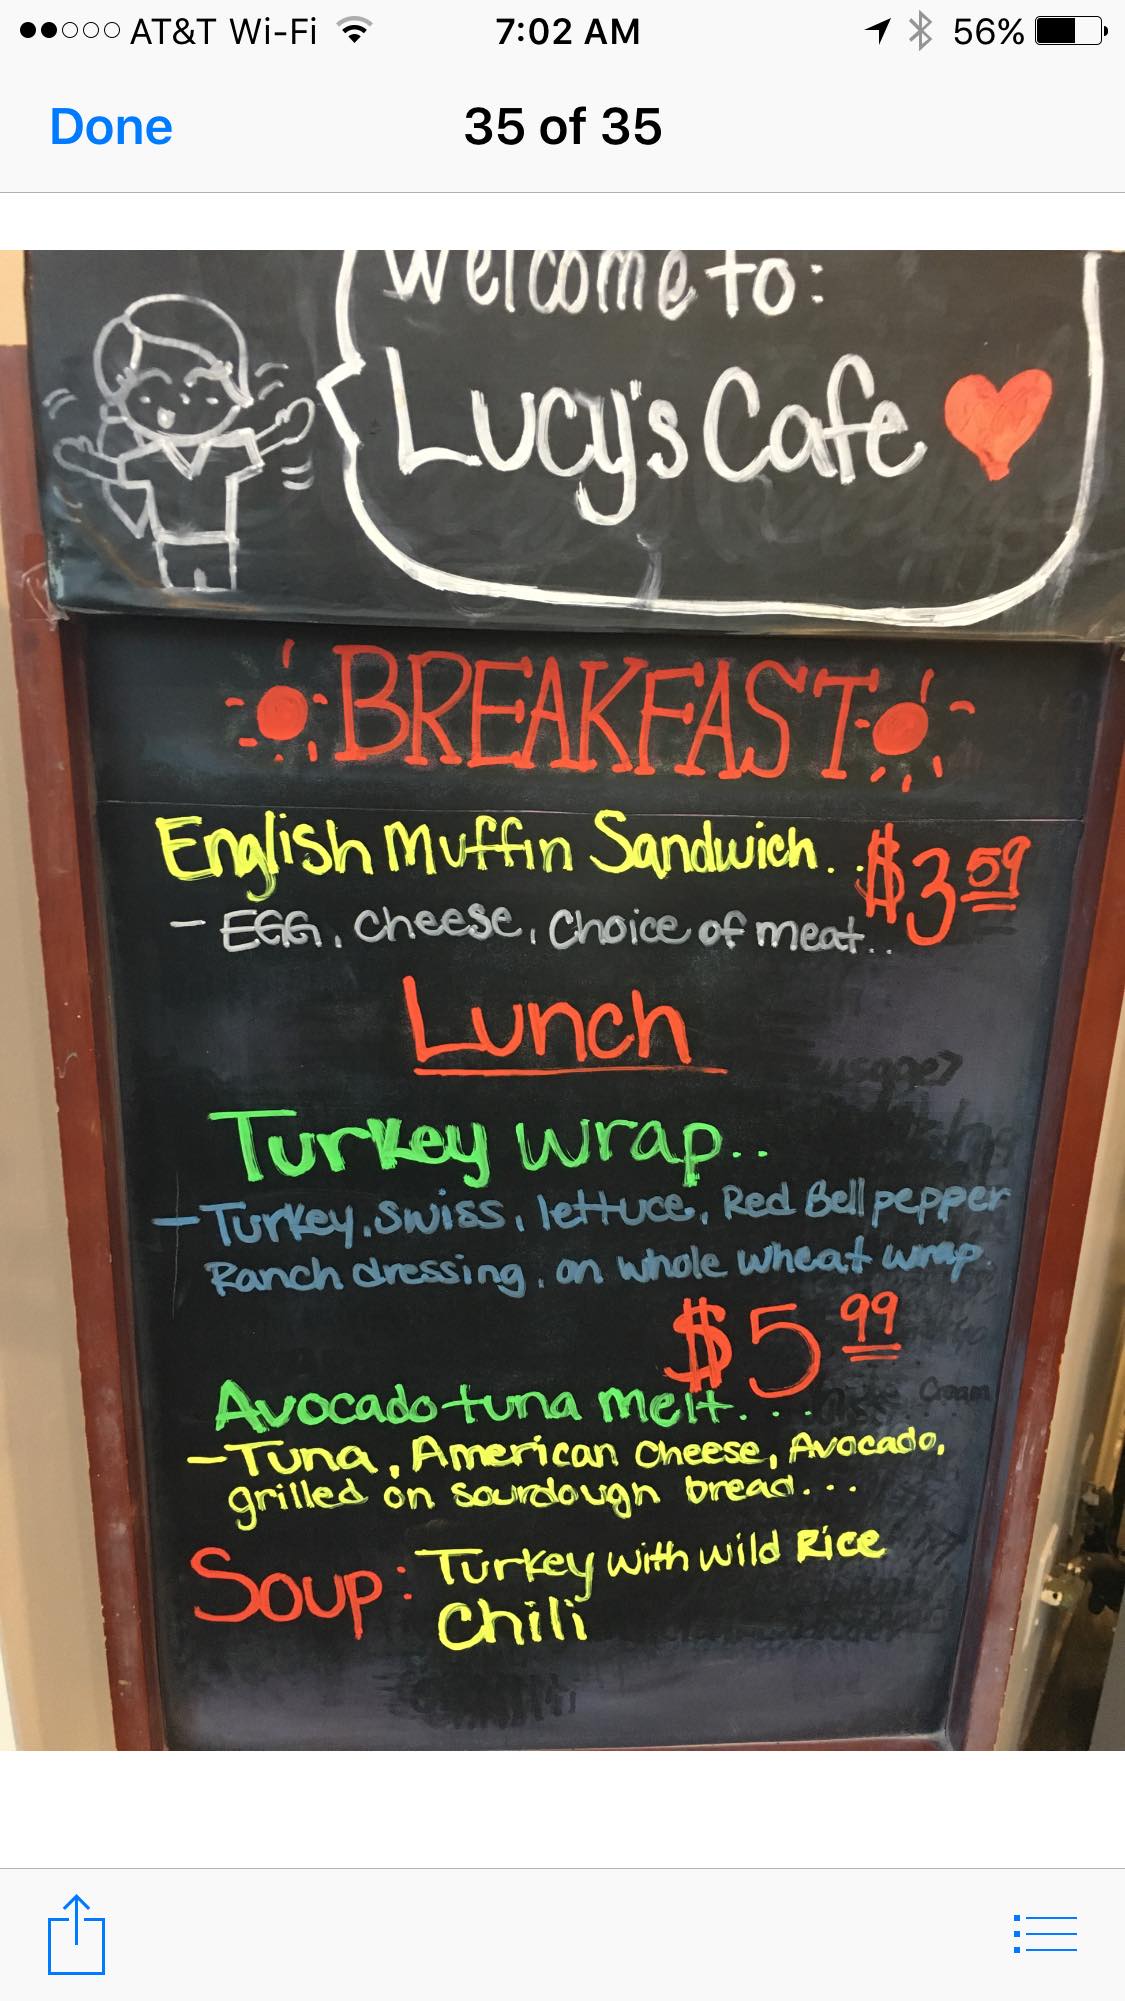 AT&T Wi-Fi 7:02 AM 56%
Done 35 of 35
Welcome to:
Lucy's Cafe
BREAKFAST
English Muffin Sandwich.. $3 59
- EGG, cheese, Choice of meat..
Lunch
Turkey wrap..
- Turkey, Swiss, lettuce, Red Bell pepper
Ranch dressing, on whole wheat wrap.
$5 99
Avocado tuna melt...
- Tuna, American Cheese, Avocado,
grilled on sourdough bread...
Soup: Turkey with wild Rice
Chili